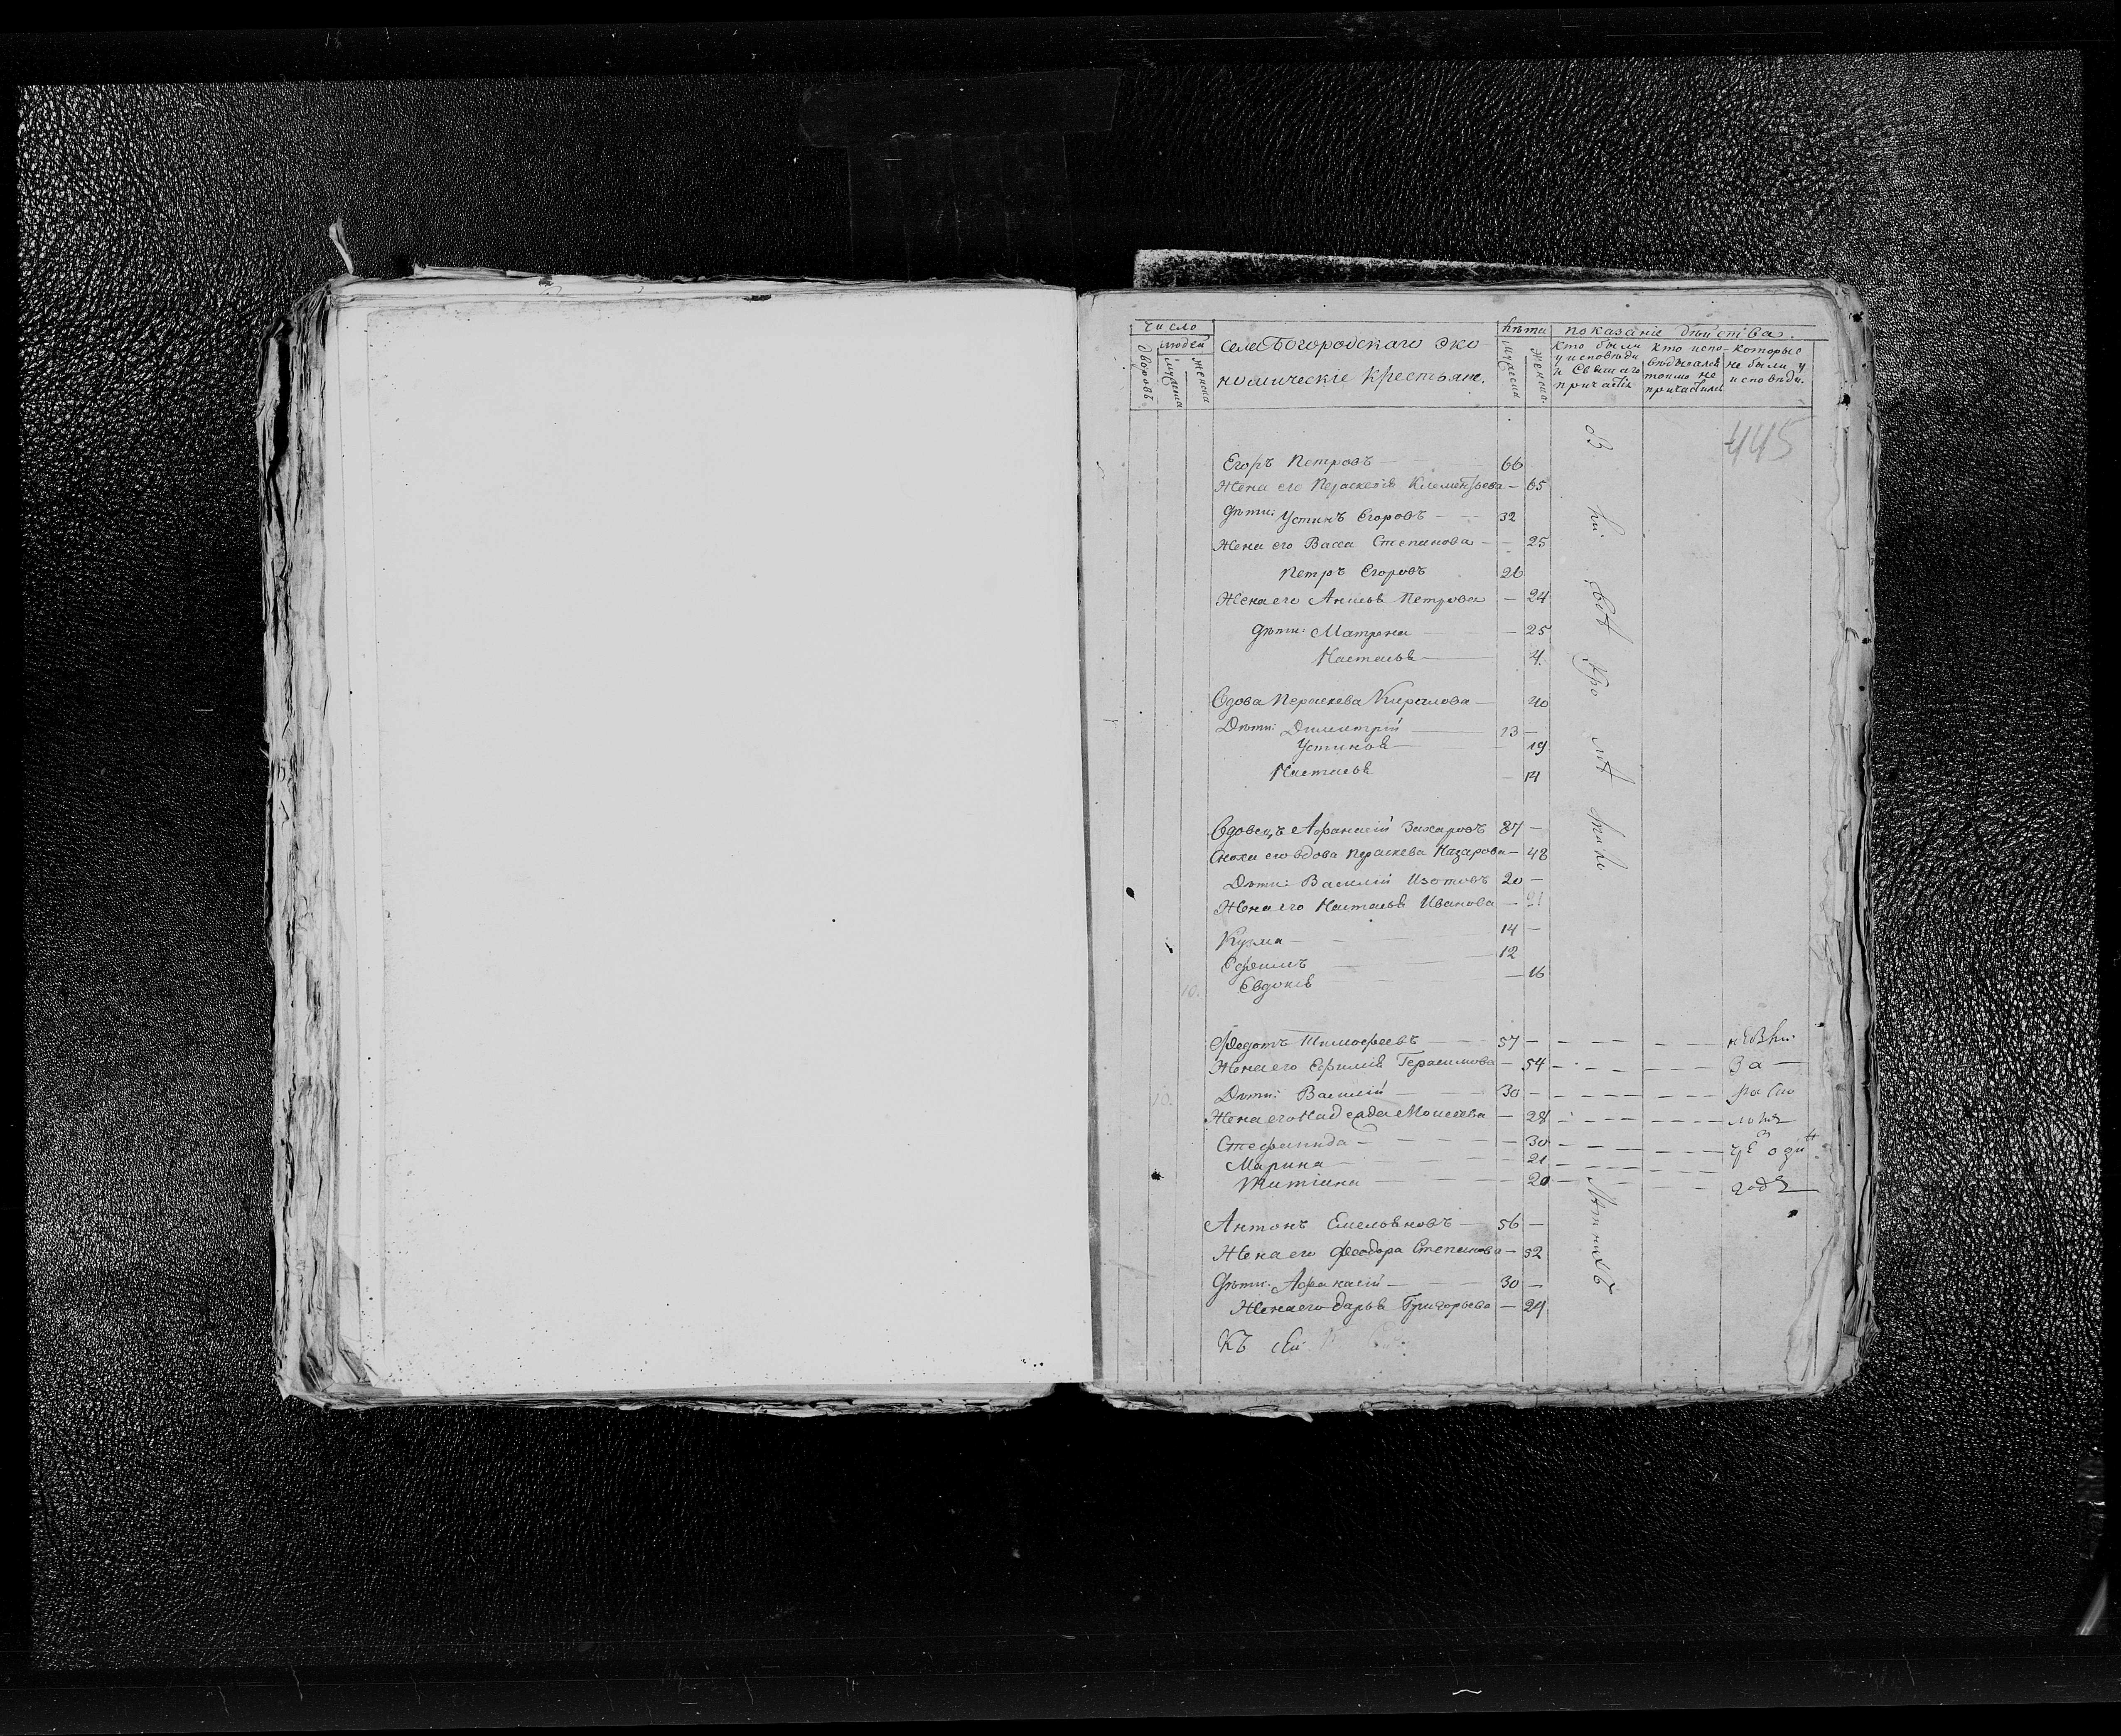 число
людей
дворовъ
мужеска
женска
села Богородскаго эко
номическіе крестьяне.
лѣта
мужеска
женска.
показаніе дѣйства.
кто были
у исповѣди
и святаго
причастія
кто испо-
вѣдывался
токмо не
причастился
которые
не были у
исповѣди.
445
Егоръ Петровъ — 66
Жена его Пераскевія Клементьева — 65
Дѣти: Устинъ Егоровъ — 32
Жена его Васса Степанова — 25
Петръ Егоровъ 26
Жена его Анисья Петрова — 24
Дѣти: Матрена — 25
Настасья — 4.
Вдова Пераскева Кирилова — 40
Дѣти: Димитрій — 13 —
Устинья — 19
Настасья — 14
Вдовецъ Афанасій Захаровъ 87 —
Сноха его вдова Пераскева Назарова — 48
Дѣти: Василій Изотовъ 20 —
Жена его Настасья Иванова — 21
Кузма — 14 —
12
Евдокія — 16
10.
Федотъ Тимофеевъ — 57 —
Жена его Ефимія Герасимова — 54
за —
Дѣти: Василій — 30 —
10.
Жена его Надежда Моисеева — 28
Стефанида — 30
Марина — 21
Татіана — 20
года
Антонъ Емельяновъ — 56 —
Жена его Феодора Степанова — 52
Дѣти: Афанасій — 30 —
Жена его Дарья Григорьева — 24
Къ сей